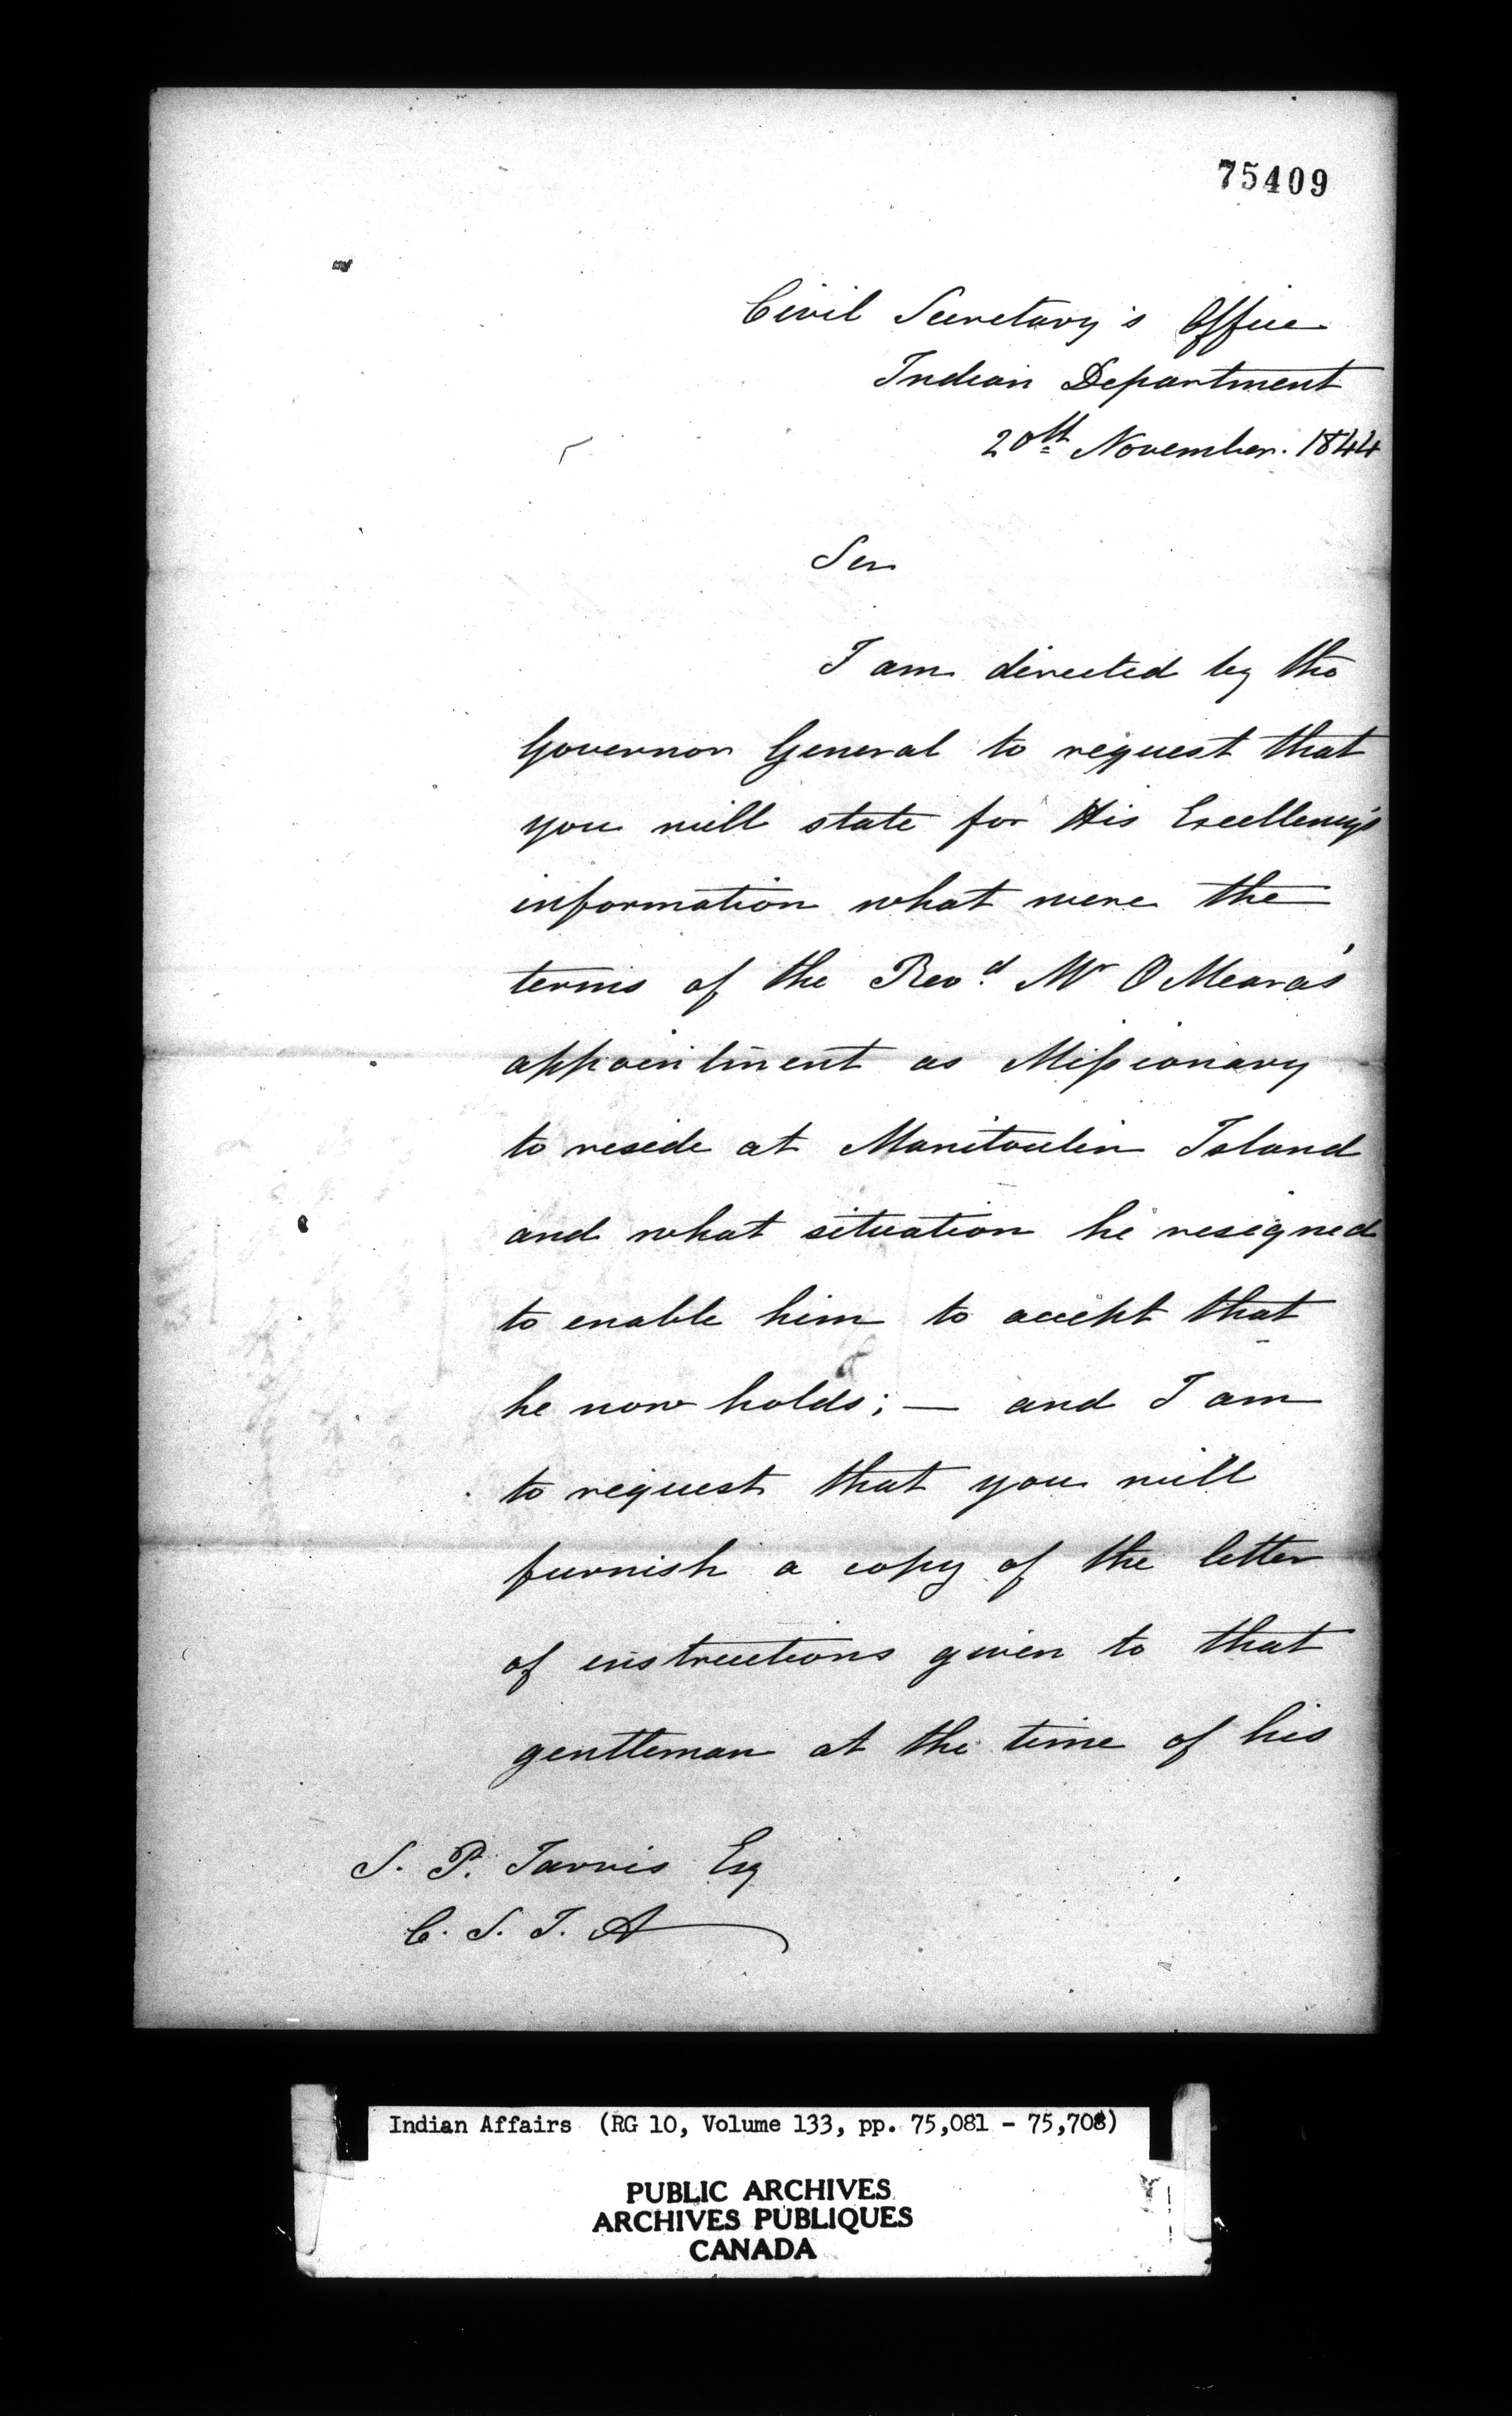 75409
Civil Secretary's Office
Indian Department
20th November. 1844
Sir
I am directed by the
Governor General to request that
you will state for His Excellency's
information what were the
terms of the Revd. Mr O'Meara's
appointment as Missionary
to reside at Manitoulin Island
and what situation he resigned
to enable him to accept that
he now holds; — and I am
to request that you will
furnish a copy of the letter
of instructions given to that
gentleman at the time of his
S. P. Jarvis Esq
C. S. I. A
Indian Affairs (RG 10, Volume 133, pp. 75,081 - 75,708)
PUBLIC ARCHIVES
ARCHIVES PUBLIQUES
CANADA